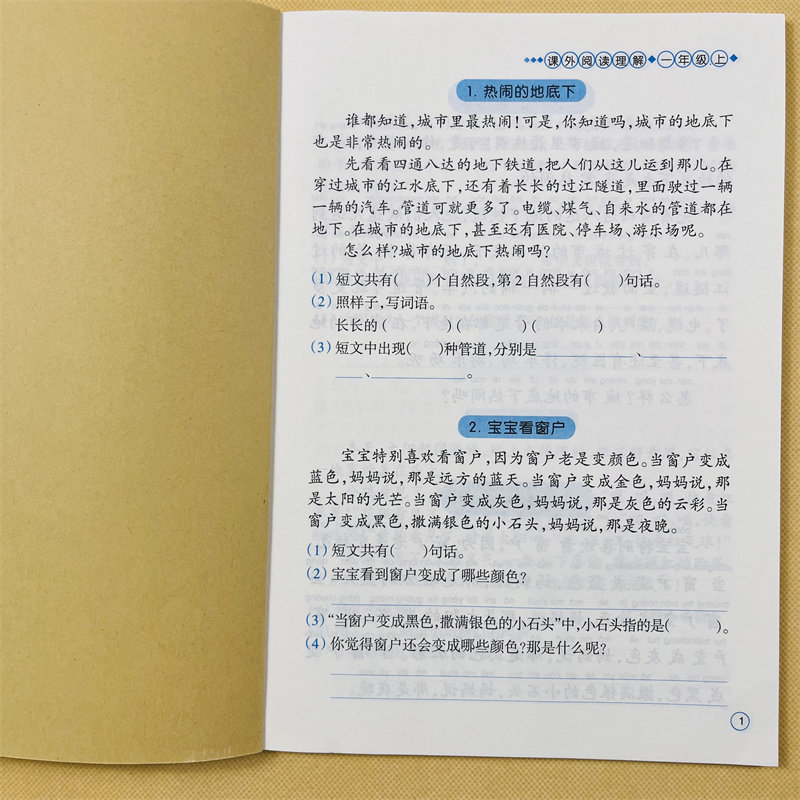 课外阅读理解 一年级上
1. 热闹的地底下
谁都知道,城市里最热闹!可是,你知道吗,城市的地底下
也是非常热闹的。
先看看四通八达的地下铁道,把人们从这儿运到那儿。在
穿过城市的江水底下,还有着长长的过江隧道,里面驶过一辆
一辆的汽车。管道可就更多了。电缆、煤气、自来水的管道都在
地下。在城市的地底下,甚至还有医院、停车场、游乐场呢。
怎么样?城市的地底下热闹吗?
(1) 短文共有( )个自然段,第2自然段有( )句话。
(2) 照样子,写词语。
长长的 ( ) ( ) ( )
(3) 短文中出现( )种管道,分别是 、
、 。
2. 宝宝看窗户
宝宝特别喜欢看窗户,因为窗户老是变颜色。当窗户变成
蓝色,妈妈说,那是远方的蓝天。当窗户变成金色,妈妈说,那
是太阳的光芒。当窗户变成灰色,妈妈说,那是灰色的云彩。当
窗户变成黑色,撒满银色的小石头,妈妈说,那是夜晚。
(1) 短文共有( )句话。
(2) 宝宝看到窗户变成了哪些颜色?
(3) “当窗户变成黑色,撒满银色的小石头”中,小石头指的是( )。
(4) 你觉得窗户还会变成哪些颜色?那是什么呢?
1